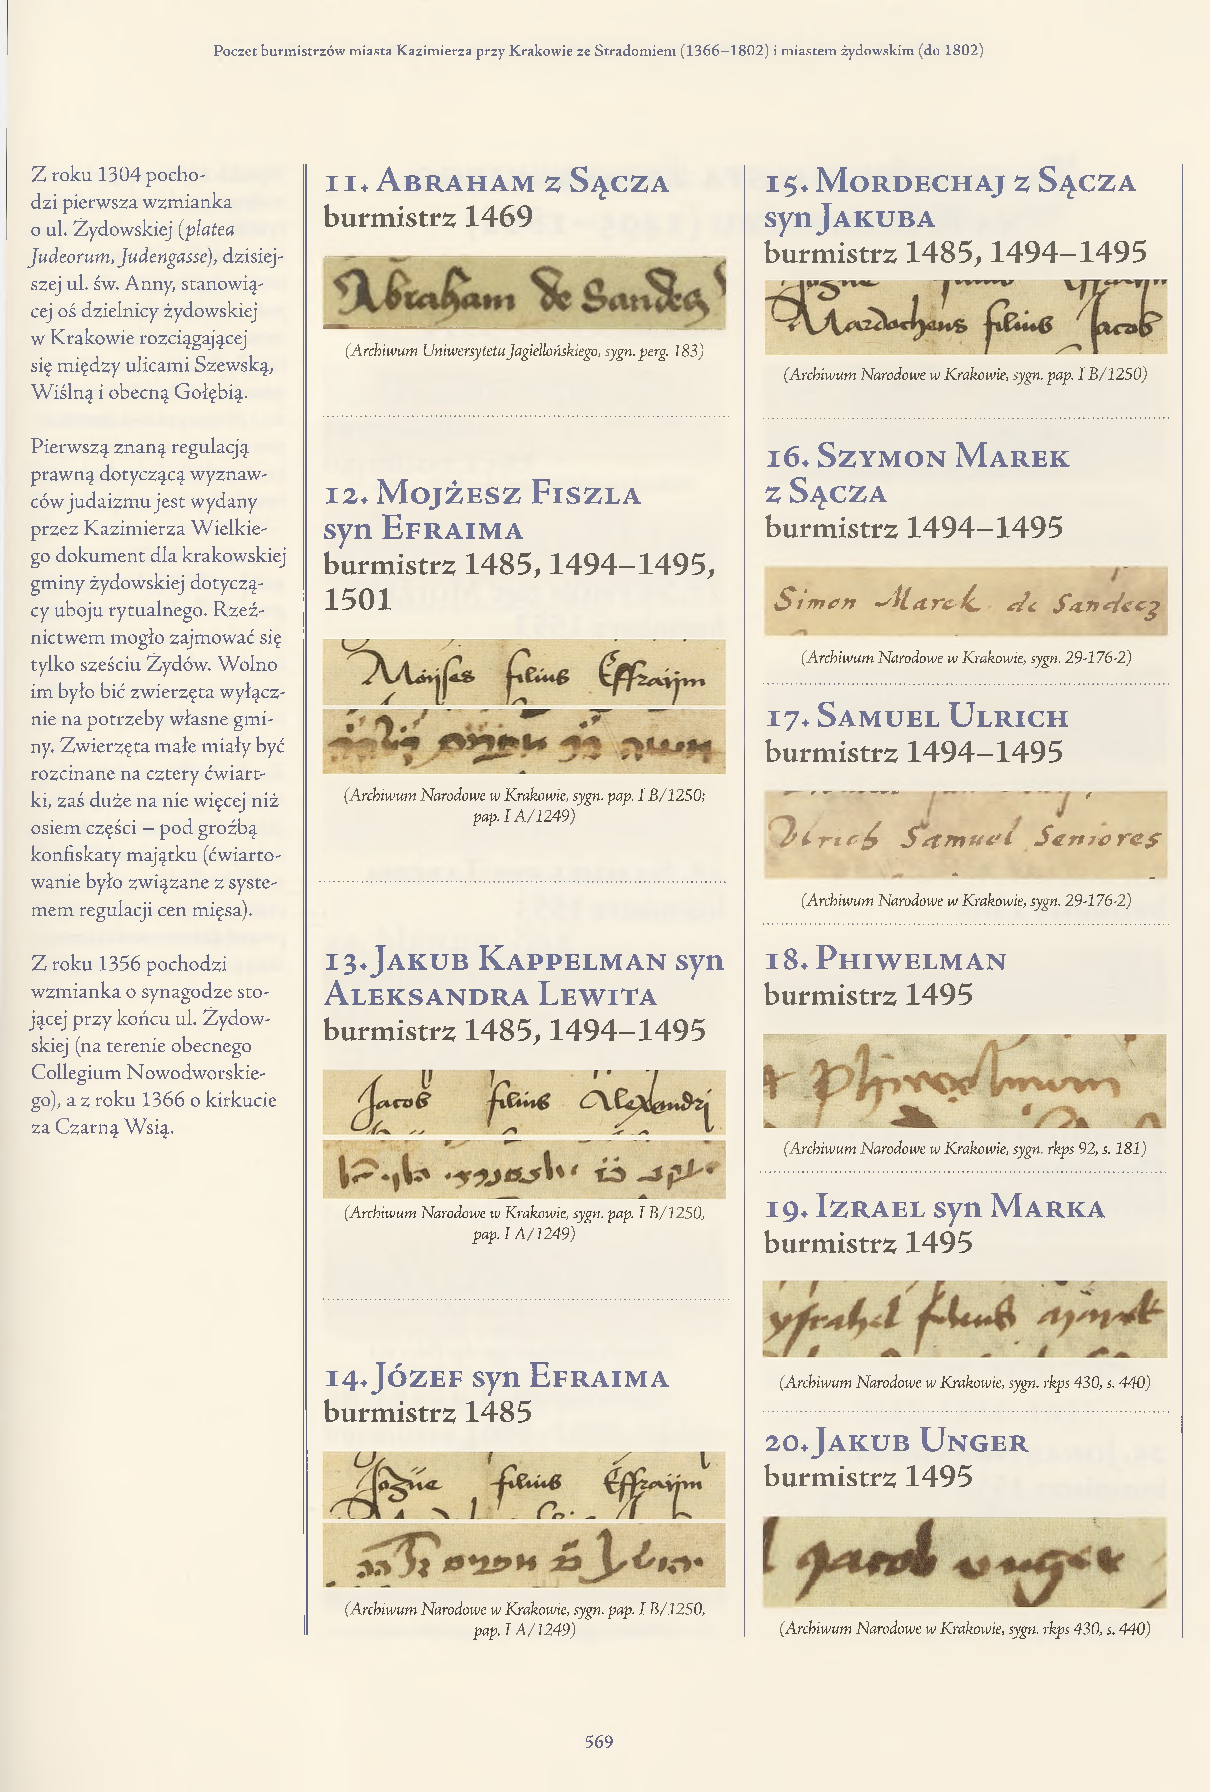 Poczet burmistrzów miasta Kazimierza przy Krakowie ze Stradomiem (1366–1802) i miastem żydowskim (do 1802)
Z roku 1304 pocho-
dzi pierwsza wzmianka
o ul. Żydowskiej (platea
Judeorum, Judengasse), dzisiej-
szej ul. św. Anny, stanowią-
cej oś dzielnicy żydowskiej
w Krakowie rozciągającej
się między ulicami Szewską,
Wiślną i obecną Gołębią.
Pierwszą znaną regulacją
prawną dotyczącą wyznaw-
ców judaizmu jest wydany
przez Kazimierza Wielkie-
go dokument dla krakowskiej
gminy żydowskiej dotyczą-
cy uboju rytualnego. Rzeź-
nictwem mogło zajmować się
tylko sześciu Żydów. Wolno
im było bić zwierzęta wyłącz-
nie na potrzeby własne gmi-
ny. Zwierzęta małe miały być
rozcinane na cztery ćwiart-
ki, zaś duże na nie więcej niż
osiem części – pod groźbą
konfiskaty majątku (ćwiarto-
wanie było związane z syste-
mem regulacji cen mięsa).
Z roku 1356 pochodzi
wzmianka o synagodze sto-
jącej przy końcu ul. Żydow-
skiej (na terenie obecnego
Collegium Nowodworskie-
go), a z roku 1366 o kirkucie
za Czarną Wsią.
11. Abraham z Sącza
burmistrz 1469
Abraham de Sandecz
(Archiwum Uniwersytetu Jagiellońskiego, sygn. perg. 183)
12. Mojżesz Fiszla
syn Efraima
burmistrz 1485, 1494–1495,
1501
Moijses filius Effraijm
(Archiwum Narodowe w Krakowie, sygn. pap. I B/1250;
pap. I A/1249)
13. Jakub Kappelman syn
Aleksandra Lewita
burmistrz 1485, 1494–1495
Jacob filius Allexandri
(Archiwum Narodowe w Krakowie, sygn. pap. I B/1250,
pap. I A/1249)
14. Józef syn Efraima
burmistrz 1485
filius Effraijm
(Archiwum Narodowe w Krakowie, sygn. pap. I B/1250,
pap. I A/1249)
15. Mordechaj z Sącza
syn Jakuba
burmistrz 1485, 1494–1495
Mardocheus filius Jacob
(Archiwum Narodowe w Krakowie, sygn. pap. I B/1250)
16. Szymon Marek
z Sącza
burmistrz 1494–1495
Simon Marek de Sandecz
(Archiwum Narodowe w Krakowie, sygn. 29-176-2)
17. Samuel Ulrich
burmistrz 1494–1495
Ulrich Samuel Seniores
(Archiwum Narodowe w Krakowie, sygn. 29-176-2)
18. Phiwelman
burmistrz 1495
(Archiwum Narodowe w Krakowie, sygn. rkps 92, s. 181)
19. Izrael syn Marka
burmistrz 1495
ysrahel filius marek
(Archiwum Narodowe w Krakowie, sygn. rkps 430, s. 440)
20. Jakub Unger
burmistrz 1495
Jacob unger
(Archiwum Narodowe w Krakowie, sygn. rkps 430, s. 440)
569